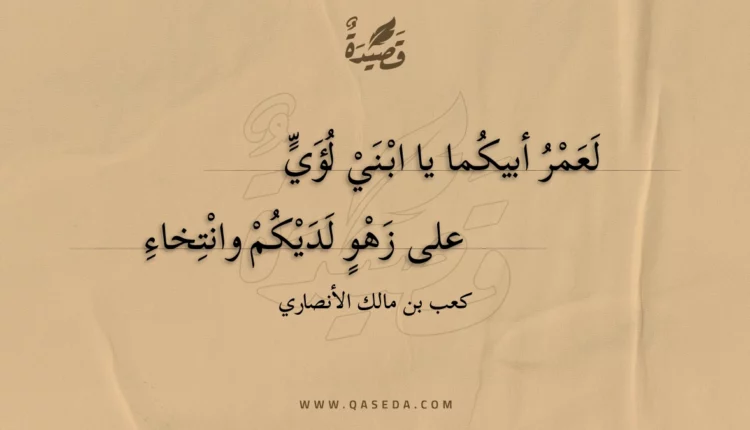 قَصِيدَةٌ
لَعَمْرُ أبيكُما يا ابْنَيْ لُؤَيٍّ
على زَهْوٍ لَدَيْكُمْ وانْتِخاءِ
كعب بن مالك الأنصاري
WWW.QASEDA.COM